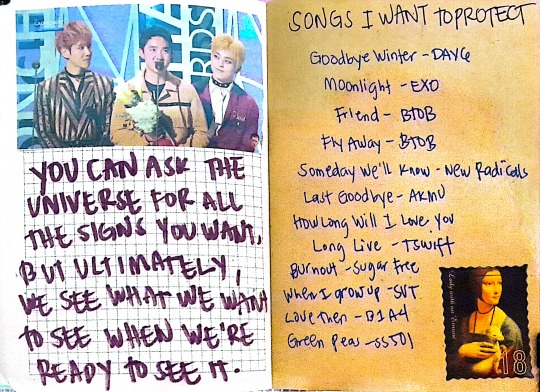 YOU CAN ASK THE
UNIVERSE FOR ALL
THE SIGNS YOU WANT,
BUT ULTIMATELY,
WE SEE WHAT WE WANT
TO SEE WHEN WE'RE
READY TO SEE IT.
SONGS I WANT TO PROTECT
Goodbye Winter - DAY6
Moonlight - EXO
Friend - BTOB
Fly Away - BTOB
Someday We'll Know - New Radicals
Last Goodbye - AKMU
How Long Will I Love You
Long Live - TSwift
Burnout - Sugar Free
When I grow up - SVT
Love Then - B1A4
Green Peas - SS501
Lady with an Ermine
18